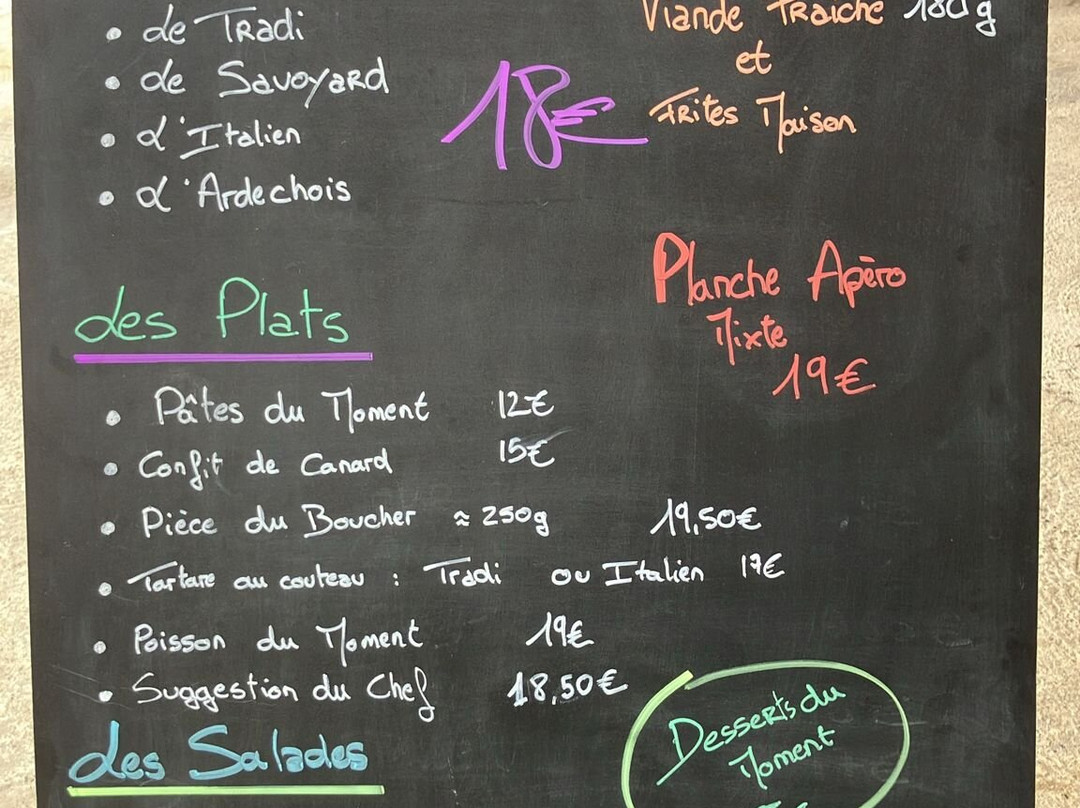 • de Tradi
• de Savoyard
• d'Italien
• d'Ardechois
18€
Viande Fraiche 180g
et
Frites Maison
Planche Apèro
Mixte
19€
des Plats
• Pâtes du Moment 12€
• Confit de Canard 15€
• Pièce du Boucher ≈ 250g 19,50€
• Tartare au couteau : Tradi ou Italien 17€
• Poisson du Moment 19€
• Suggestion du Chef 18,50€
des Salades
Desserts du
Moment